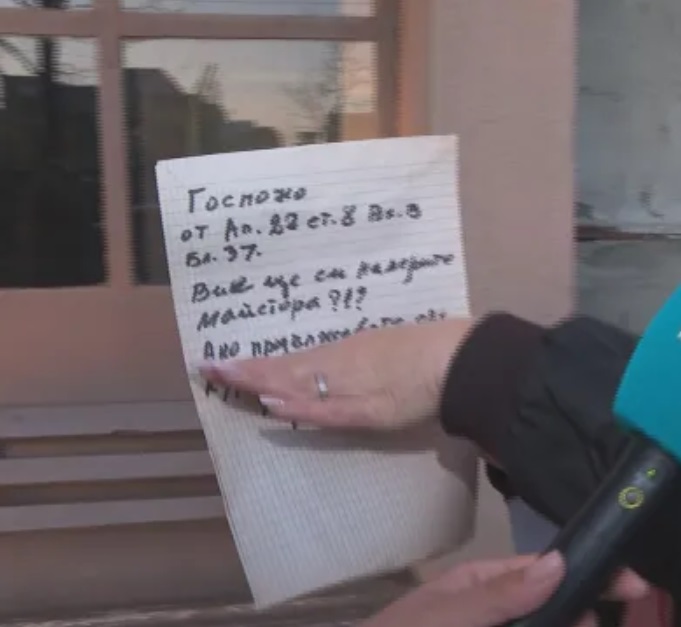 Госпожо
от Ап. 22 ет. 8 Вх. В
Бл. 37.
Вие ще си намерите
майстора ?!?
Ако продължавате